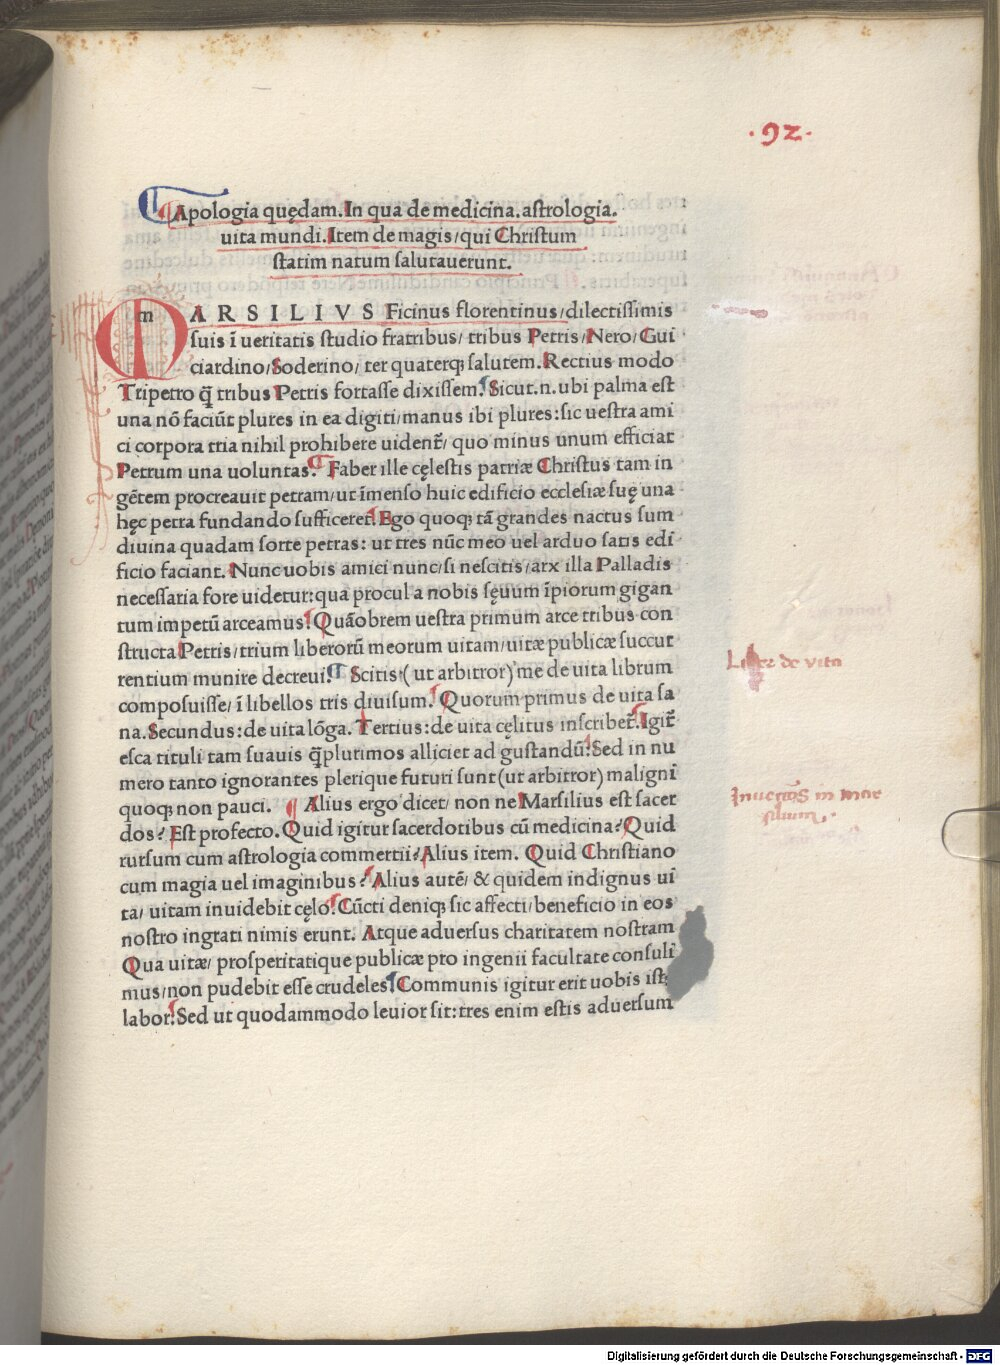 .92.
Apologia quędam. In qua de medicina. astrologia.
uita mundi. Item de magis/qui Christum
statim natum salutauerunt.
MARSILIVS Ficinus florentinus/dilectissimis
suis ī ueritatis studio fratribus/ tribus Petris/Nero/Gui
ciardino/Soderino/ ter quaterqꝫ salutem. Rectius modo
Tripetro q̄ tribus Petris fortasse dixissem. Sicut.n. ubi palma est
una nō faciūt plures in ea digiti/manus ibi plures: sic uestra ami
ci corpora tria nihil prohibere uident̄/ quo minus unum efficiat
Petrum una uoluntas. Faber ille cęlestis patriæ Christus tam in
gētem procreauit petram/ut īmenso huic edificio ecclesiæ suę una
hęc petra fundando sufficeret. Ego quoqꝫ tā grandes nactus sum
diuina quadam sorte petras: ut tres nūc meo uel arduo satis edi
ficio faciant. Nunc uobis amici nunc/si nescitis/arx illa Palladis
necessaria fore uidetur: qua procul a nobis sęuum īpiorum gigan
tum impetū arceamus. Quāobrem uestra primum arce tribus con
structa Petris/trium liberorū meorum uitam/uitæ publicæ succur
rentium munire decreui. Scitis (ut arbitror) me de uita librum
composuisse/ ī libellos tris diuisum. Quorum primus de uita sa
na. Secundus: de uita lōga. Tertius: de uita cęlitus inscribet̄. Igit̄
esca tituli tam suauis q̄plurimos alliciet ad gustandū. Sed in nu
mero tanto ignorantes plerique futuri sunt (ut arbitror) maligni
quoqꝫ non pauci. Alius ergo dicet/ non ne Marsilius est sacer
dos? Est profecto. Quid igitur sacerdotibus cū medicina? Quid
rursum cum astrologia commertii? Alius item. Quid Christiano
cum magia uel imaginibus? Alius autē/ & quidem indignus ui
ta/ uitam inuidebit cęlo. Cūcti deniqꝫ sic affecti/beneficio in eos
nostro ingrati nimis erunt. Atque aduersus charitatem nostram
Qua uitæ/ prosperitatique publicæ pro ingenii facultate consuli
mus/non pudebit esse crudeles. Communis igitur erit uobis istꝫ
labor. Sed ut quodammodo leuior sit: tres enim estis aduersum
Liber de vita
Inuectiōs in mar
silium.
Digitalisierung gefördert durch die Deutsche Forschungsgemeinschaft - DFG